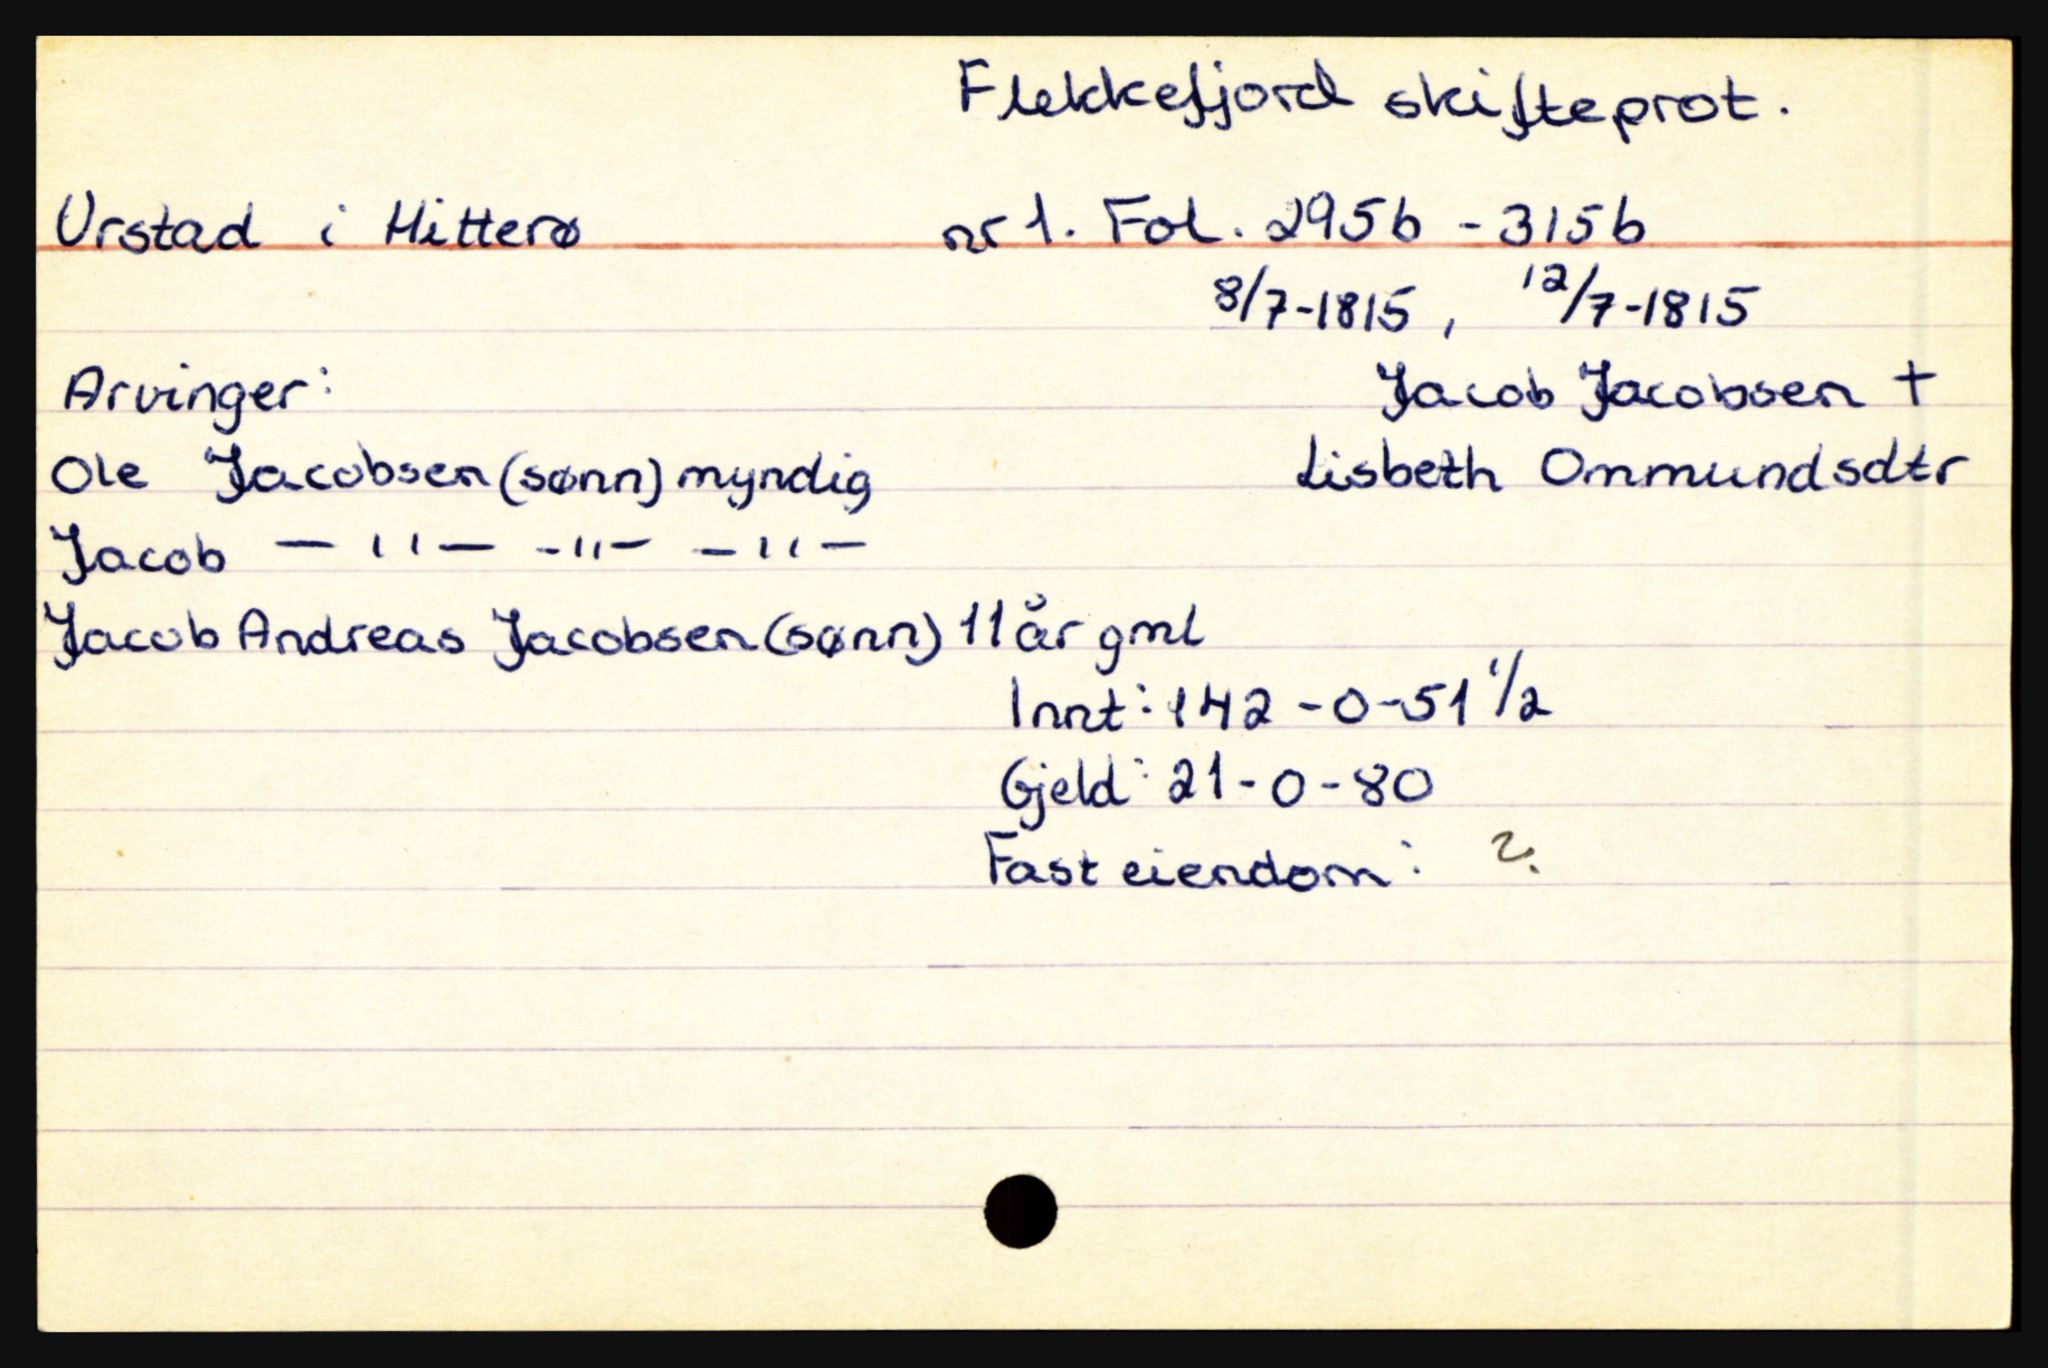 Flekkefjord skifteprot.
Urstad i Hitterø nr 1. Fol. 295b - 315b
8/7-1815, 12/7-1815
Arvinger: Jacob Jacobsen †
Ole Jacobsen (sønn) myndig Lisbeth Ommundsdtr
Jacob — " — - " - - " -
Jacob Andreas Jacobsen (sønn) 11 år gml
Innt: 142 - 0 - 51 1/2
Gjeld: 21 - 0 - 80
Fast eiendom: ?